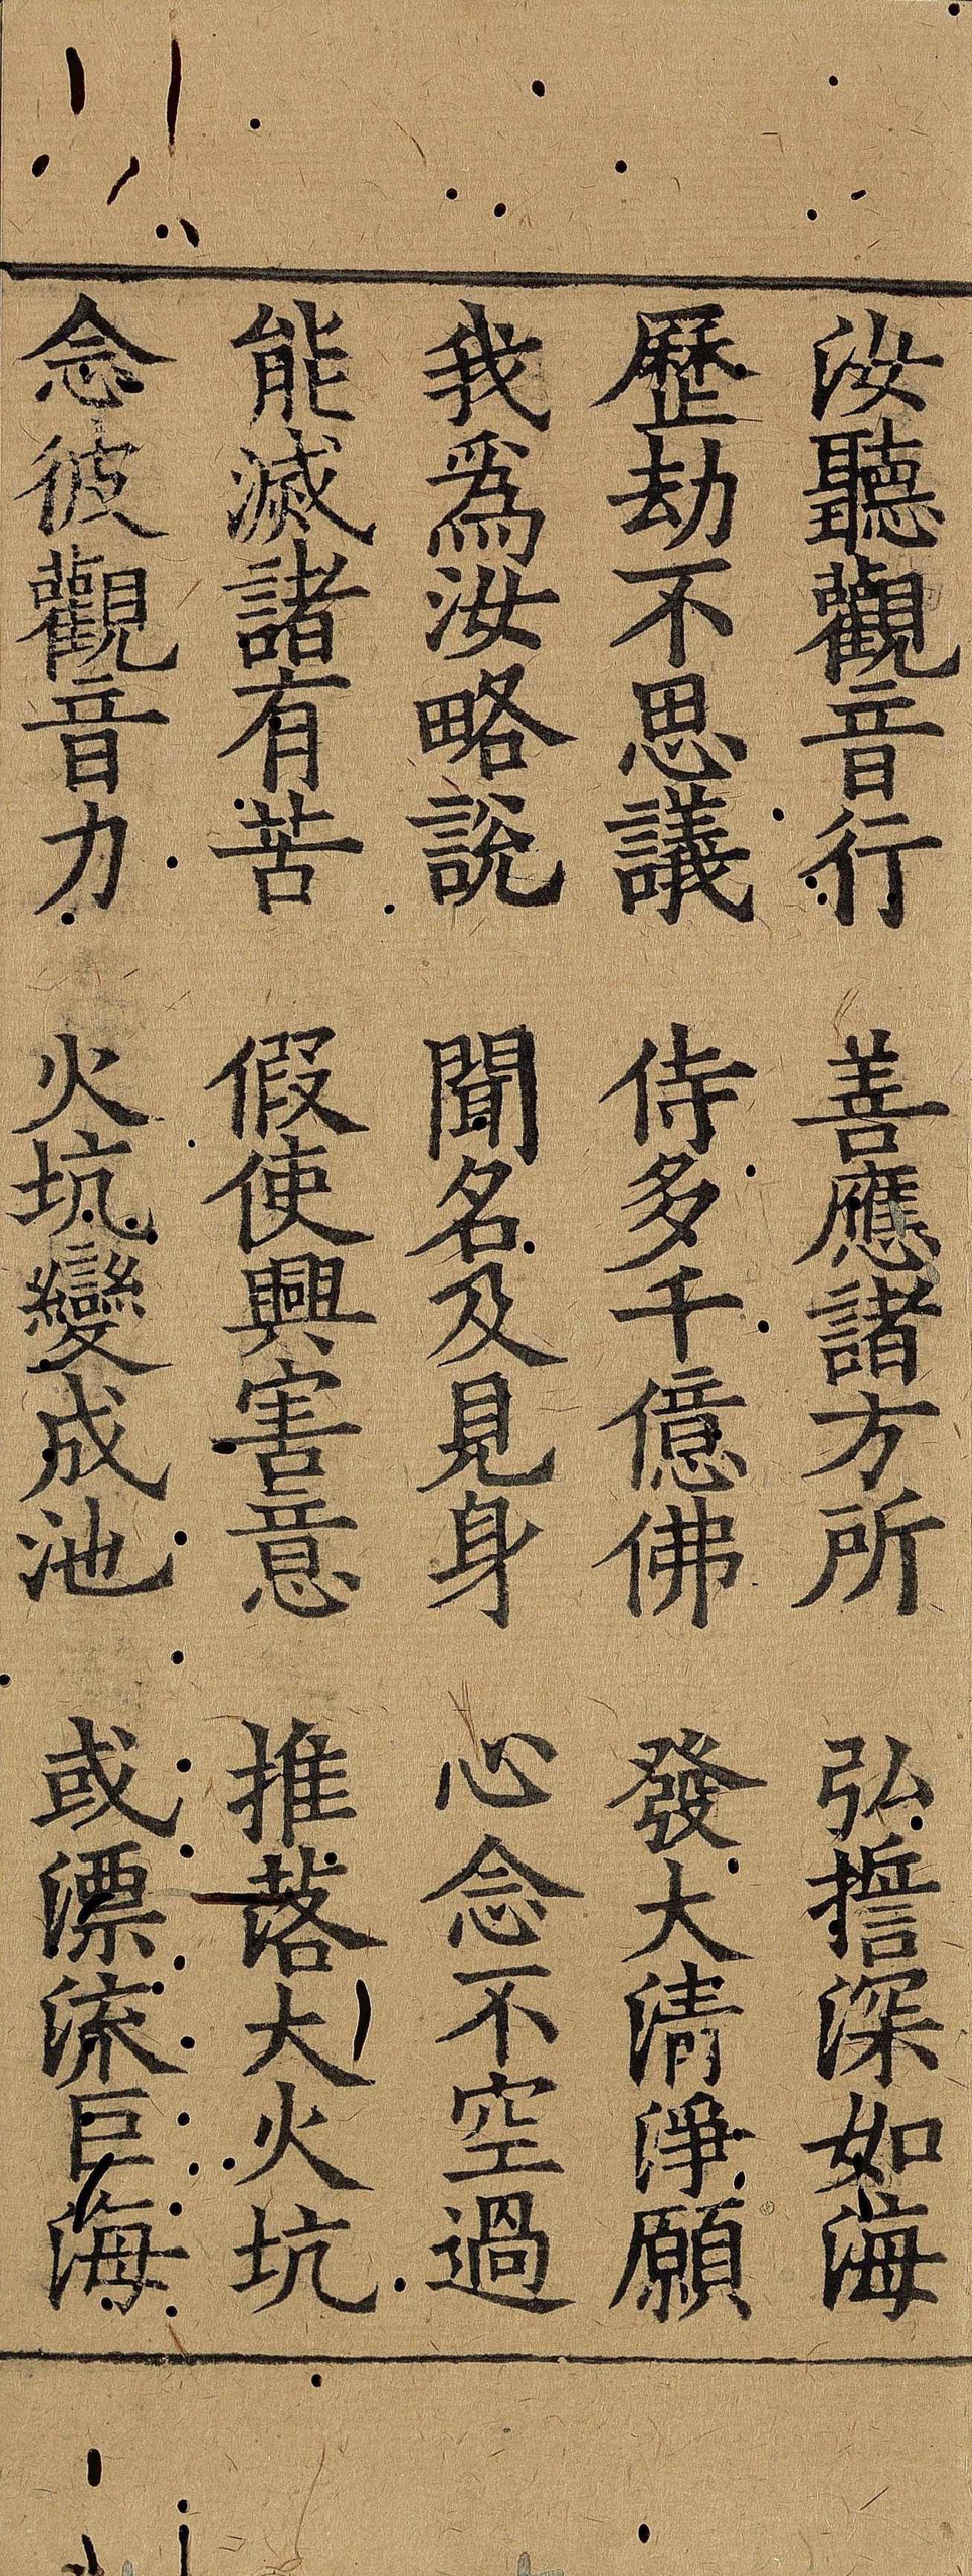 汝聽觀音行　善應諸方所　弘誓深如海
歷劫不思議　侍多千億佛　發大清淨願
我爲汝略說　聞名及見身　心念不空過
能滅諸有苦　假使興害意　推落大火坑
念彼觀音力　火坑變成池　或漂流巨海